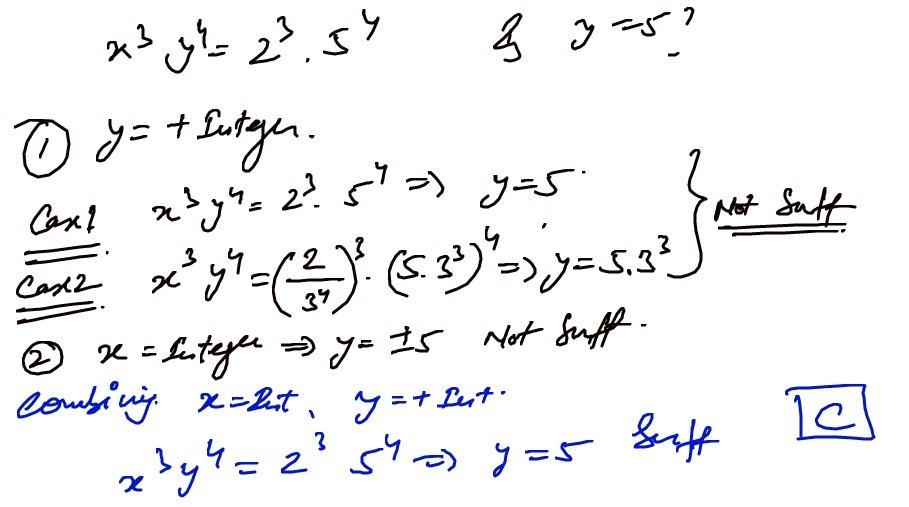 x³ y⁴ = 2³ . 5⁴ & y = 5?
① y = + Integer.
Case1 x³ y⁴ = 2³. 5⁴ ⇒ y = 5
Case2 x³ y⁴ = (2/3⁴)³ . (5.3³)⁴ ⇒ y = 5.3³ } Not Suff
② x = Integer ⇒ y = ±5 Not Suff.
Combining. x = Int, y = + Int.
x³ y⁴ = 2³ 5⁴ ⇒ y = 5 Suff C